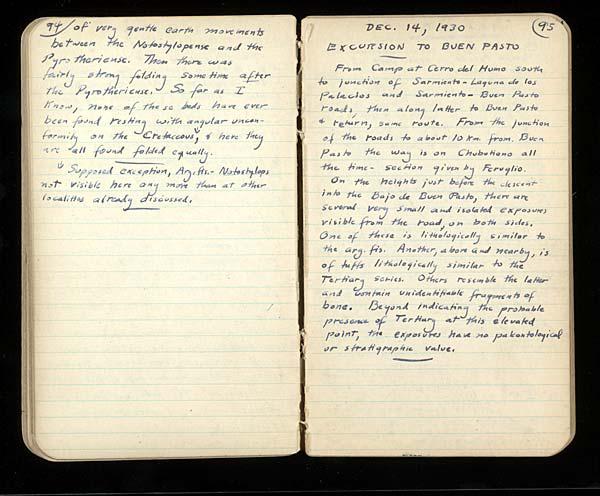 94
of very gentle earth movements
between the Notostylopense and the
Pyrotheriense. Then there was
fairly strong folding sometime after
the Pyrotheriense. So far as I
know, none of these beds have ever
been found resting with angular uncon-
formity on the Cretaceous, & here they
are all found folded equally.
Supposed exception, Arg. fis.- Notostylops
not visible here any more than at other
localities already discussed.
95
DEC. 14, 1930
EXCURSION TO BUEN PASTO
From Camp at Cerro del Humo south
to junction of Sarmiento-Laguna de los
Palacios and Sarmiento- Buen Pasto
roads, then along latter to Buen Pasto
& return, same route. From the junction
of the roads to about 10 km. from Buen
Pasto the way is on Chubutiano all
the time- section given by Feruglio.
On the heights just before the descent
into the Bajo de Buen Pasto, there are
several very small and isolated exposures
visible from the road, on both sides.
One of these is lithologically similar to
the arg. fis. Another, above and nearby, is
of tuffs lithologically similar to the
Tertiary series. Others resemble the latter
and contain unidentifiable fragments of
bone. Beyond indicating the probable
presence of Tertiary at this elevated
point, the exposures have no paleontological
or stratigraphic value.